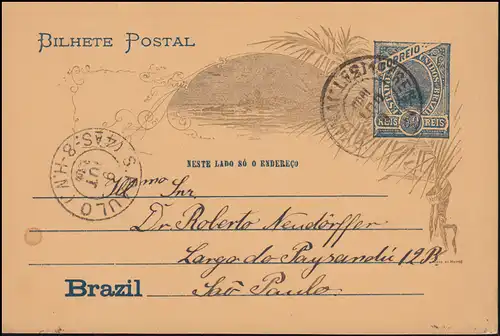 BILHETE POSTAL
CORREIO
REIS REIS
NESTE LADO SÓ O ENDEREÇO
S. PAULO
(4AS-8-H.N.)
9
OUT
Illmo Snr
Dr. Roberto Neudörffer
Largo do Paysandú 12B
São Paulo.
Brazil